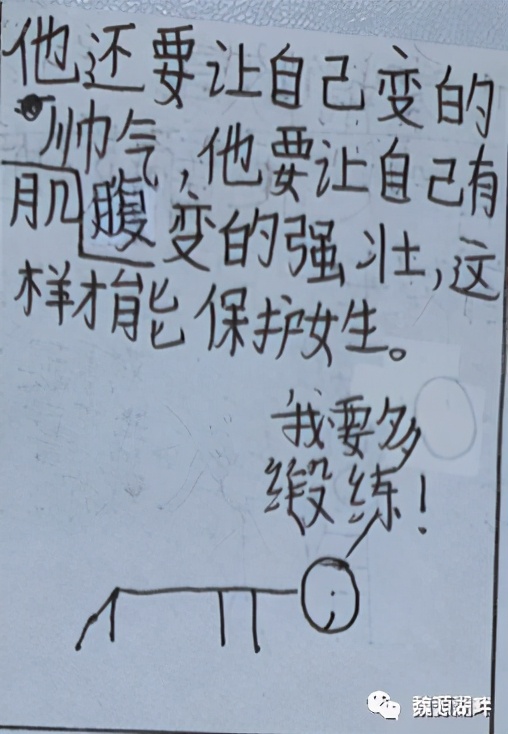 他还要让自己变的
帅气，他要让自己有
肌腹变的强壮，这
样才能保护女生。
我要多
锻练！
魏源湖畔